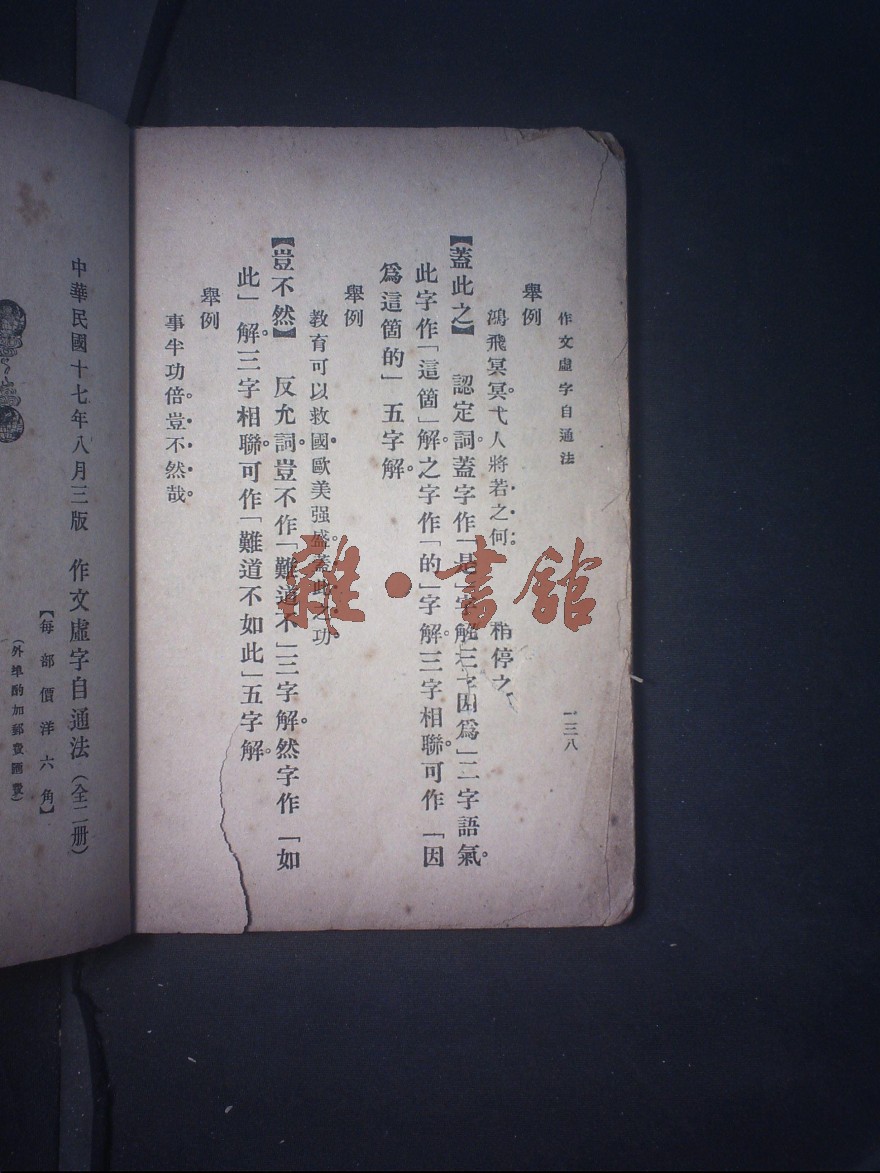 作文虛字自通法　一三八
舉例
鴻飛冥冥。弋人將若之何。　稍停之
【蓋此之】　認定詞。蓋字作「是」字解。因爲」二字語氣。
此字作「這箇」解。之字作「的」字解。三字相聯。可作「因
爲這箇的」五字解。
舉例
教育可以救國。歐美强盛。蓋此之功
【豈不然】　反允詞。豈不作「難道不」三字解。然字作「如
此」解。三字相聯。可作「難道不如此」五字解。
舉例
事半功倍。豈不然哉。
中華民國十七年八月三版　作文虛字自通法（全二册）
【每部價洋六角】
（外埠酌加郵費匯費）
雜·書館